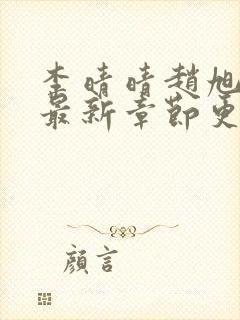 李晴晴趙旭
最新章節更
顔言